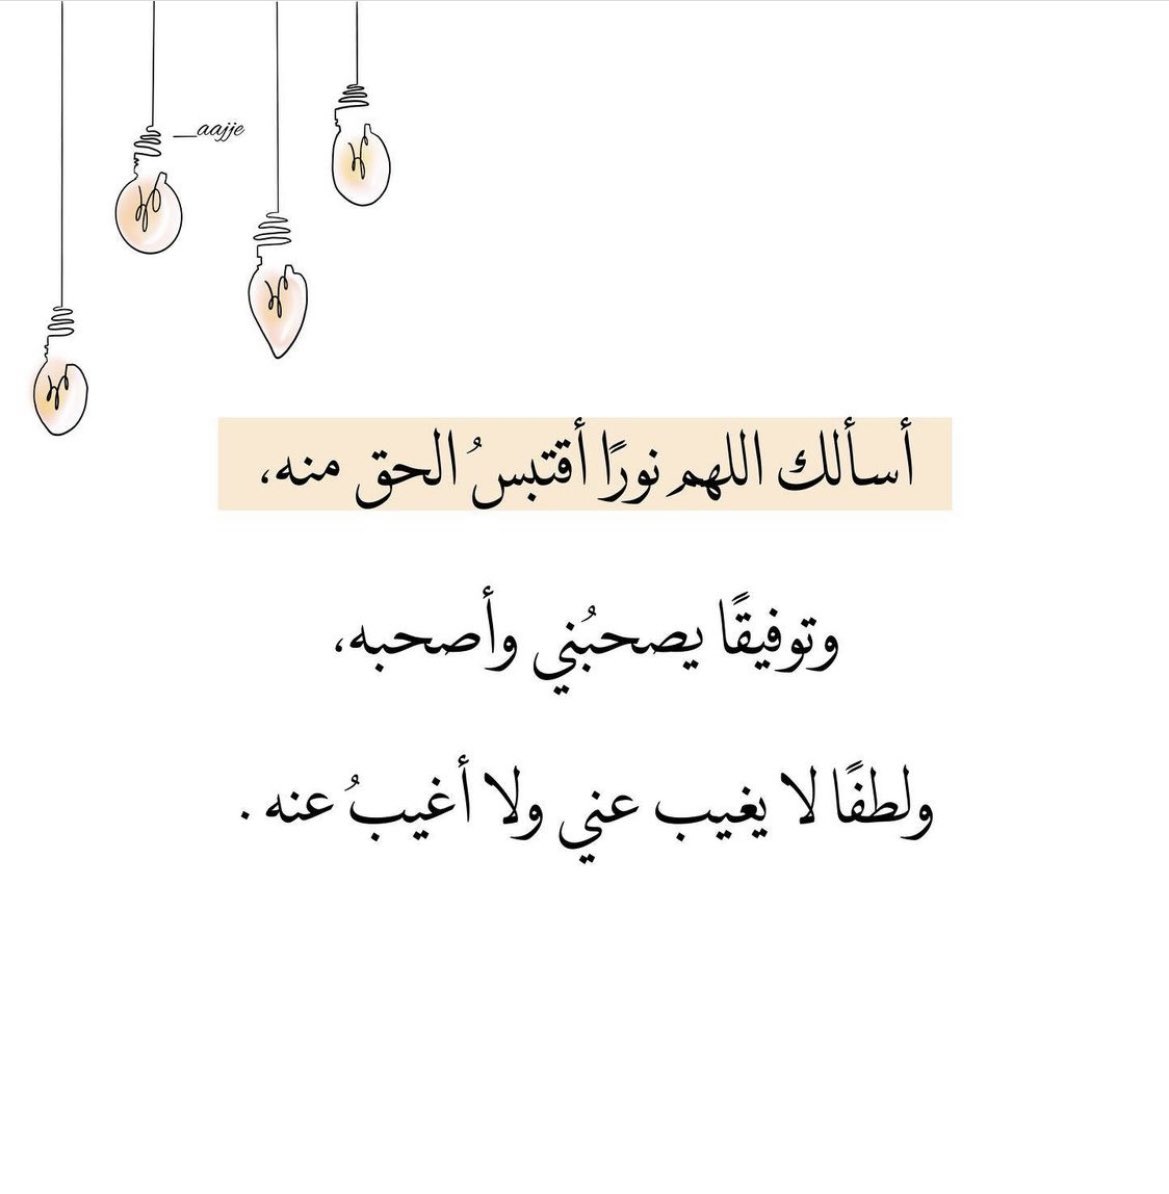 __aajje
أسألك اللهم نورًا أقتبسُ الحق منه،
وتوفيقًا يصحبُني وأصحبه،
ولطفًا لا يغيب عني ولا أغيبُ عنه .